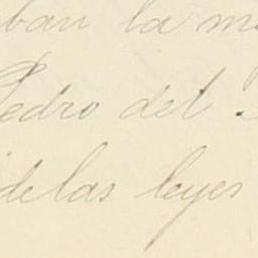 ban la m
Pedro del
de las leyes